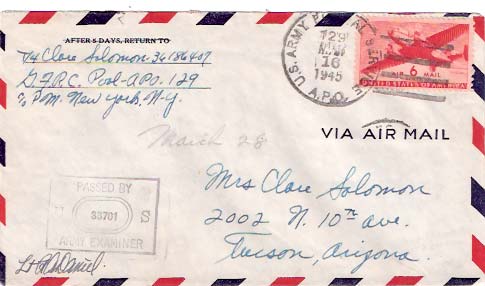 AFTER 5 DAYS, RETURN TO
T/4 Clare Solomon-36186407
G.F.R.C. Pool-APO. 129
c/o P.M. New York, N.Y.
U.S. ARMY POSTAL SERVICE
129
MAR
16
1945
A.P.O.
AIR 6 MAIL
UNITED STATES OF AMERICA
VIA AIR MAIL
March 28
PASSED BY
U 33701 S
ARMY EXAMINER
Mrs Clare Solomon
2002 N. 10th ave.
Tucson, Arizona.
Lt